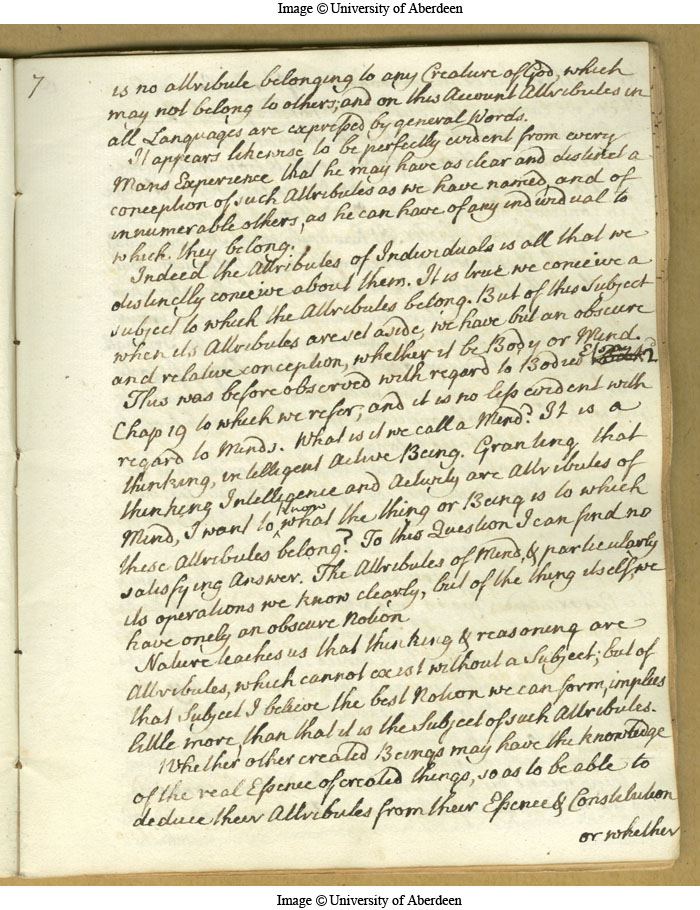 Image © University of Aberdeen
7
is no attribute belonging to any Creature of God, which
may not belong to others; and on this Account Attributes in
all Languages are expressed by general Words.
It appears likewise to be perfectly evident from every
Mans Experience that he may have as clear and distinct a
conception of such Attributes as we have named, and of
innumerable others, as he can have of any individual to
which they belong.
Indeed the Attributes of Individuals is all that we
distinctly conceive about them. It is true we conceive a
subject to which the Attributes belong. But of this subject
when its Attributes are set aside, we have but an obscure
and relative conception, whether it be Body or Mind.
This was before observed with regard to Bodies Essay 2d
Chap 19 to which we refer; and it is no less evident with
regard to Minds. What is it we call a Mind? It is a
thinking, intelligent Active Being. Granting that
thinking Intelligence and Activity are Attributes of
Mind, I want to know what the thing or Being is to which
these Attributes belong? To this Question I can find no
satisfying Answer. The Attributes of Mind, & particularly
its operations we know clearly, but of the thing itself, we
have onely an obscure Notion
Nature teaches us that thinking & reasoning are
Attributes, which cannot exist without a Subject; but of
that Subject I believe the best Notion we can form, implies
little more than that it is the Subject of such Attributes.
Whether other created Beings may have the knowledge
of the real Essence of created things, so as to be able to
deduce their Attributes from their Essence & Constitution
or whether
Image © University of Aberdeen